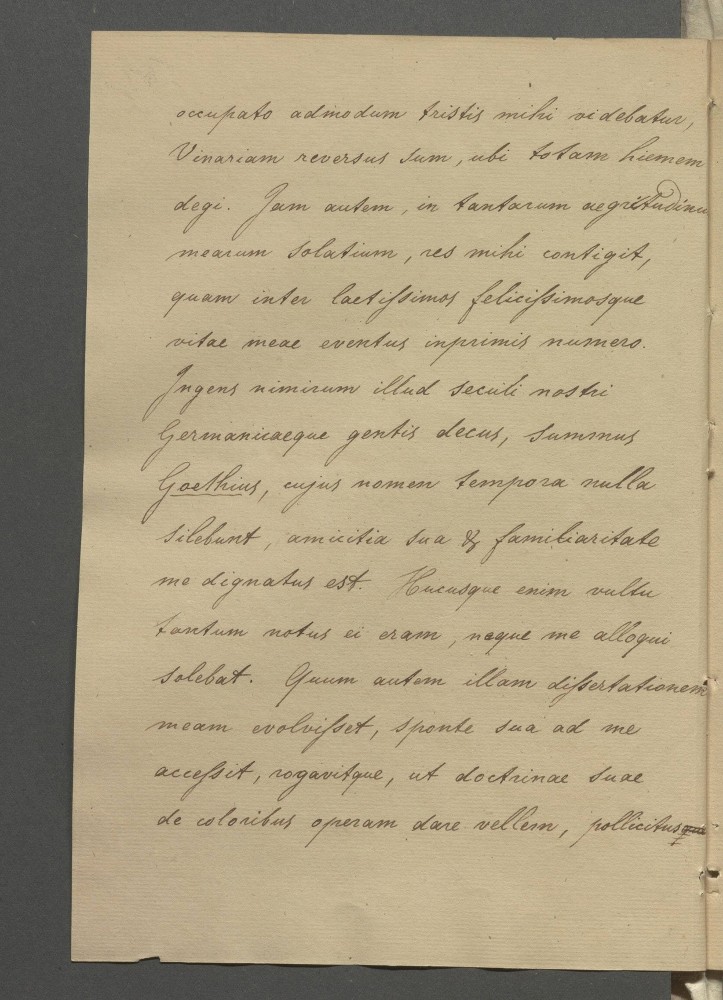 occupato admodum tristis mihi videbatur,
Vinariam reversus sum, ubi totam hiemem
degi. Jam autem, in tantarum aegritudinu
mearum solatium, res mihi contigit,
quam inter laetissimos felicissimosque
vitae meae eventus inprimis numero.
Ingens nimirum illud seculi nostri
Germanicaeque gentis decus, summus
Goethius, cujus nomen tempora nulla
silebunt, amicitia sua & familiaritate
me dignatus est. Hucusque enim vultu
tantum notus ei eram, neque me alloqui
solebat. Quum autem illam dissertationem
meam evolvisset, sponte sua ad me
accessit, rogavitque, ut doctrinae suae
de coloribus operam dare vellem, pollicitusque